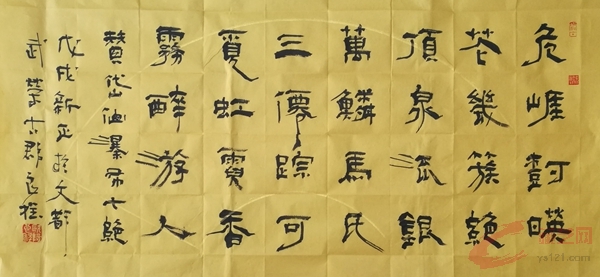 危崖對暎
花幾簇絕
頂泉流銀
萬鱗馬氏
三僊踪可
覓虹霓香
霧醉游人
贊岱仙瀑布七絕
戊戌新正於文都
武榮古郡良